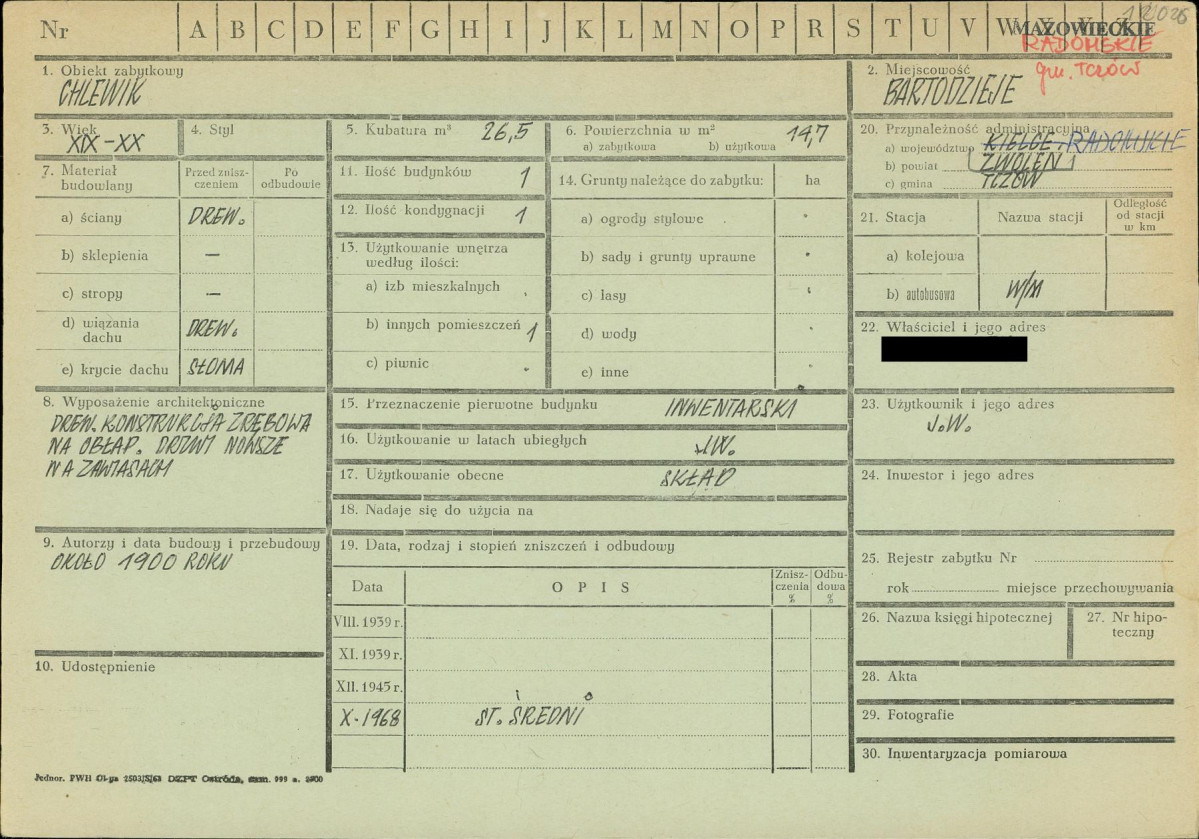 Nr A B C D E F G H I J K L M N O P R S T U V W
MAZOWIECKIE
RADOMSKIE
gm. TCZÓW
1. Obiekt zabytkowy
CHLEWIK
2. Miejscowość
BARTODZIEJE
3. Wiek
XIX-XX
4. Styl
5. Kubatura m³ 26,5
6. Powierzchnia w m² 14,7
a) zabytkowa b) użytkowa
20. Przynależność administracyjna
a) województwo KIELCE, RADOMSKIE
b) powiat ZWOLEŃ
c) gmina TCZÓW
7. Materiał budowlany
Przed zniszczeniem
Po odbudowie
a) ściany DREW.
b) sklepienia —
c) stropy —
d) wiązania dachu DREW.
e) krycie dachu SŁOMA
11. Ilość budynków 1
12. Ilość kondygnacji 1
13. Użytkowanie wnętrza
według ilości:
a) izb mieszkalnych
b) innych pomieszczeń 1
c) piwnic
14. Grunty należące do zabytku: ha
a) ogrody stylowe
b) sady i grunty uprawne
c) lasy
d) wody
e) inne
21. Stacja Nazwa stacji
Odległość
od stacji
w km
a) kolejowa
b) autobusowa W/M
22. Właściciel i jego adres
8. Wyposażenie architektoniczne
DREW. KONSTRUKCJA ZRĘBOWA
NA OBŁAP. DRZWI NOWSZE
NA ZAWIASACH
15. Przeznaczenie pierwotne budynku INWENTARSKI
16. Użytkowanie w latach ubiegłych J.W.
17. Użytkowanie obecne SKŁAD
18. Nadaje się do użycia na
23. Użytkownik i jego adres
J.W.
24. Inwestor i jego adres
9. Autorzy i data budowy i przebudowy
OKOŁO 1900 ROKU
10. Udostępnienie
19. Data, rodzaj i stopień zniszczeń i odbudowy
Data OPIS
Zniszczenia %
Odbudowa %
VIII. 1939 r.
XI. 1939 r.
XII. 1945 r.
X-1968 ST. ŚREDNI
25. Rejestr zabytku Nr
rok miejsce przechowywania
26. Nazwa księgi hipotecznej
27. Nr hipoteczny
28. Akta
29. Fotografie
30. Inwentaryzacja pomiarowa